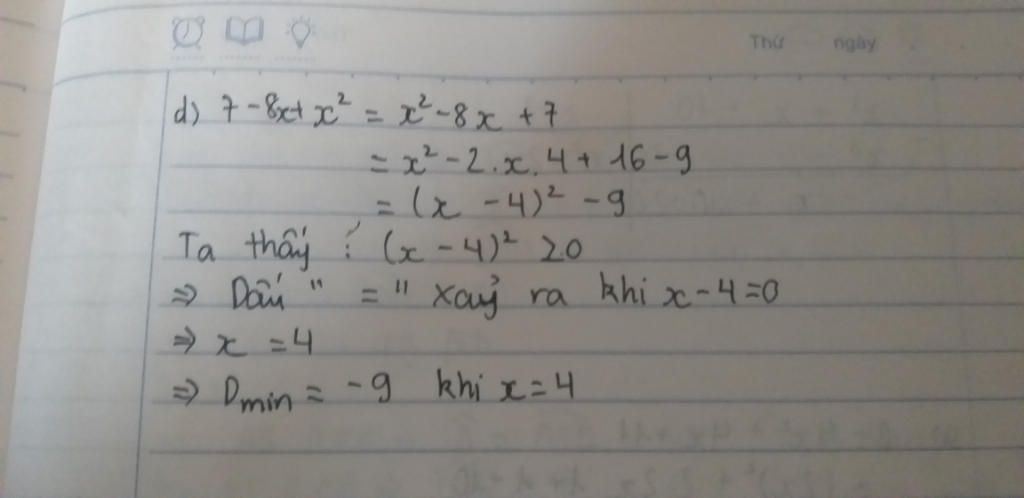 Thứ ngày
d) 7 - 8x + x² = x² - 8x + 7
= x² - 2.x.4 + 16 - 9
= (x - 4)² - 9
Ta thấy : (x - 4)² ≥ 0
⇒ Dấu " = " xảy ra khi x - 4 = 0
⇒ x = 4
⇒ Dmin = -9 khi x = 4